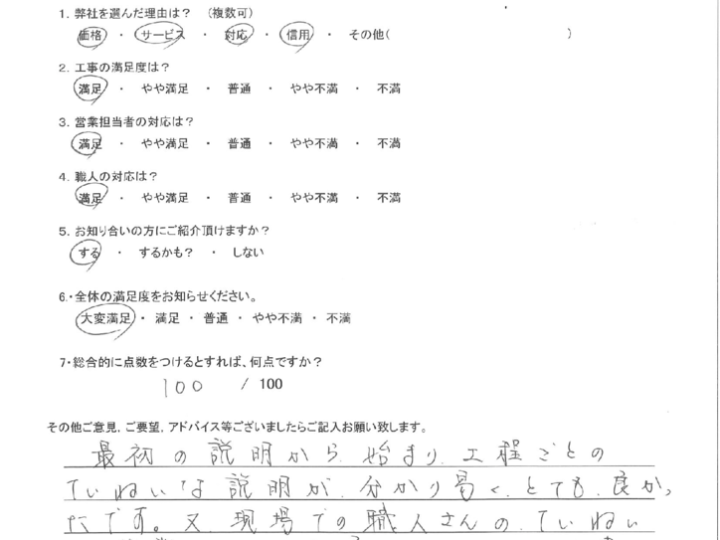 1. 弊社を選んだ理由は？ （複数可）
価格 ・ サービス ・ 対応 ・ 信用 ・ その他( )
2. 工事の満足度は？
満足 ・ やや満足 ・ 普通 ・ やや不満 ・ 不満
3. 営業担当者の対応は？
満足 ・ やや満足 ・ 普通 ・ やや不満 ・ 不満
4. 職人の対応は？
満足 ・ やや満足 ・ 普通 ・ やや不満 ・ 不満
5. お知り合いの方にご紹介頂けますか？
する ・ するかも？ ・ しない
6.・全体の満足度をお知らせください。
大変満足 ・ 満足 ・ 普通 ・ やや不満 ・ 不満
7・総合的に点数をつけるとすれば、何点ですか？
100 / 100
その他ご意見，ご要望，アドバイス等ございましたらご記入お願い致します。
最初の説明から始まり、工程ごとの
ていねいな説明が、分かり易く、とても、良かっ
たです。又、現場での職人さんの、ていねい